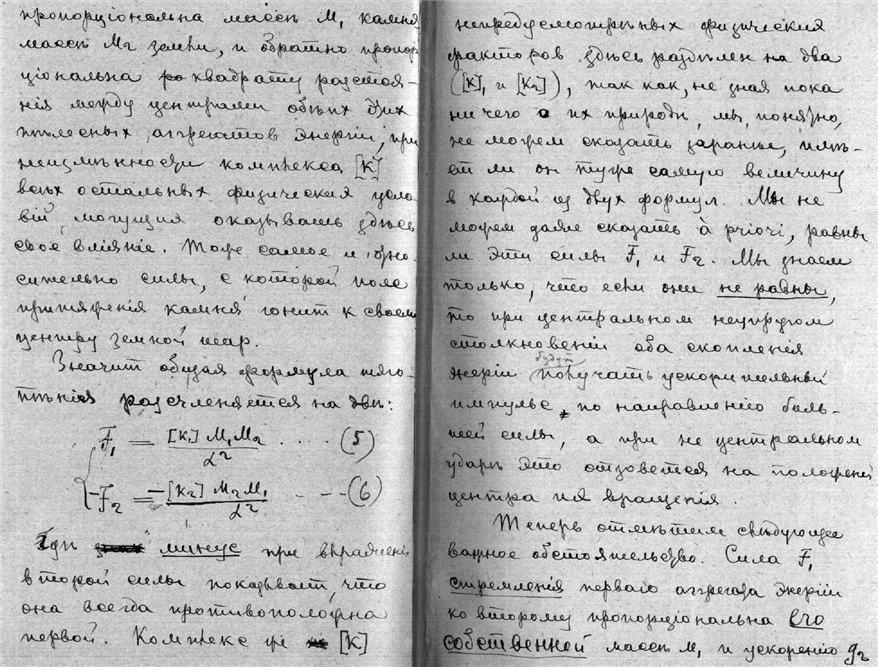 пропорціональна массѣ М, камня
массѣ М₂ земли, и обратно пропор
ціональна квадрату разстоя-
нія между центрами обѣихъ этих
тѣлесных аггрегатов энергіи, при
неизмѣнности комплекса [К]
всѣх остальных физическия усло
вій, могущия оказывать здѣсь
свое вліяніе. Тоже самое и отно-
сительно силы, с которой поле
притяженія камня гонит к своему
центру земной шар.
Значит общая формула тяго-
тѣнія разчленяется на двѣ:
F₁ = [К₁] М₁М₂ / d² .... (5)
F₂ = -[К₂] М₂М₁ / d² .... (6)
Гдѣ минус при выраженіи
второй силы показывает, что
она всегда противоположна
первой. Комплекс же [К]
непредусмотрѣнных физическия
факторов здѣсь раздѣлен на два
([К]₁ и [К₂]), так как, не зная пока
ничего о их природѣ, мы, понятно,
не можем сказать заранѣе, имѣ-
ет ли он туже самую величину
в каждой из двух формул. Мы не
можем даже сказать à priori, равны
ли эти силы F₁ и F₂. Мы знаем
только, что если они не равны,
то при центральном неупругом
столкновеніи оба скопленія
энергіи будут получать ускорительный
импульс по направленію боль-
шей силы, а при не центральном
ударѣ это отзовется на положеніи
центра ихъ вращенія.
Теперь отмѣтим слѣдующее
важное обстоятельство. Сила F₁
стремленія перваго аггрегата энергіи
ко второму пропорціональна его
собственной массѣ М₁ и ускоренію g₂